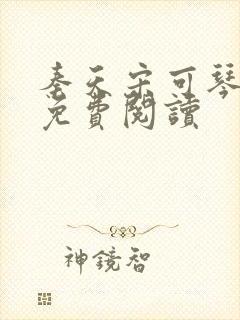 奉天宋可琴
免費閱讀
神鏡智